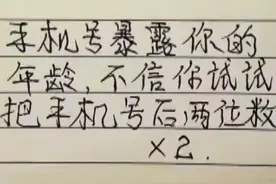 手机号暴露你的
年龄,不信你试试
把手机号后两位数
×2.